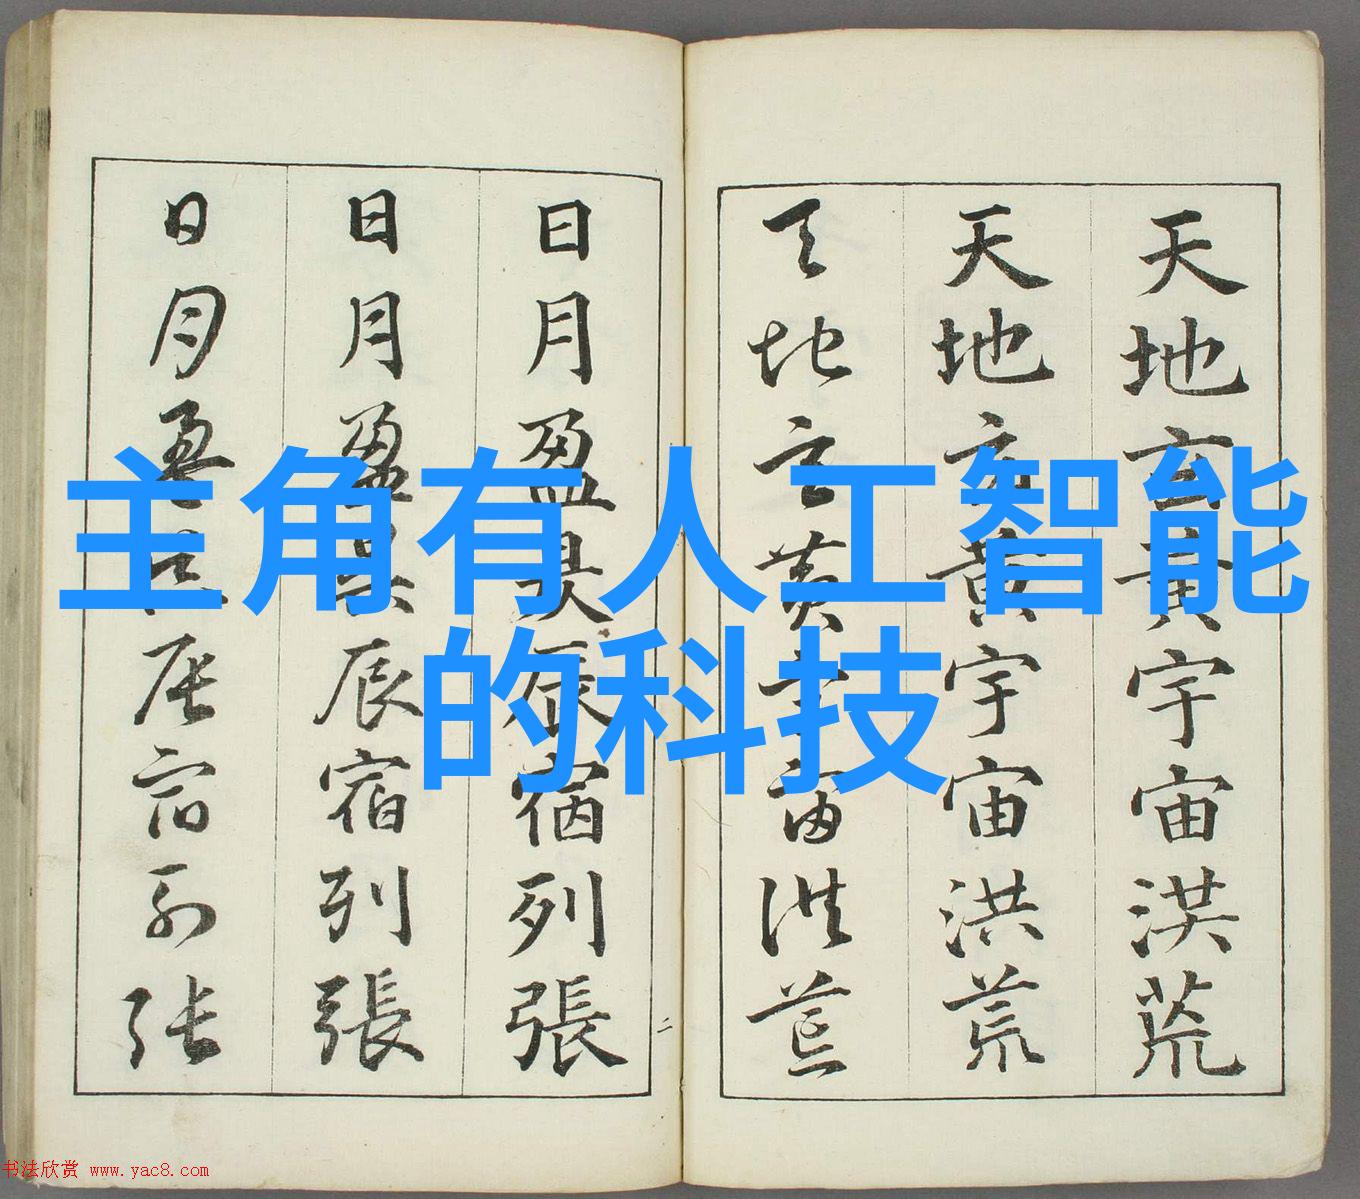 天地玄黃宇宙洪荒
天地玄黃宇宙洪荒
天地玄黃宇宙洪荒
日月盈昃辰宿列張
日月盈昃辰宿列張
日月盈昃辰宿列張
二
主角有人工智能
的科技
书法欣赏 www.yac8.com